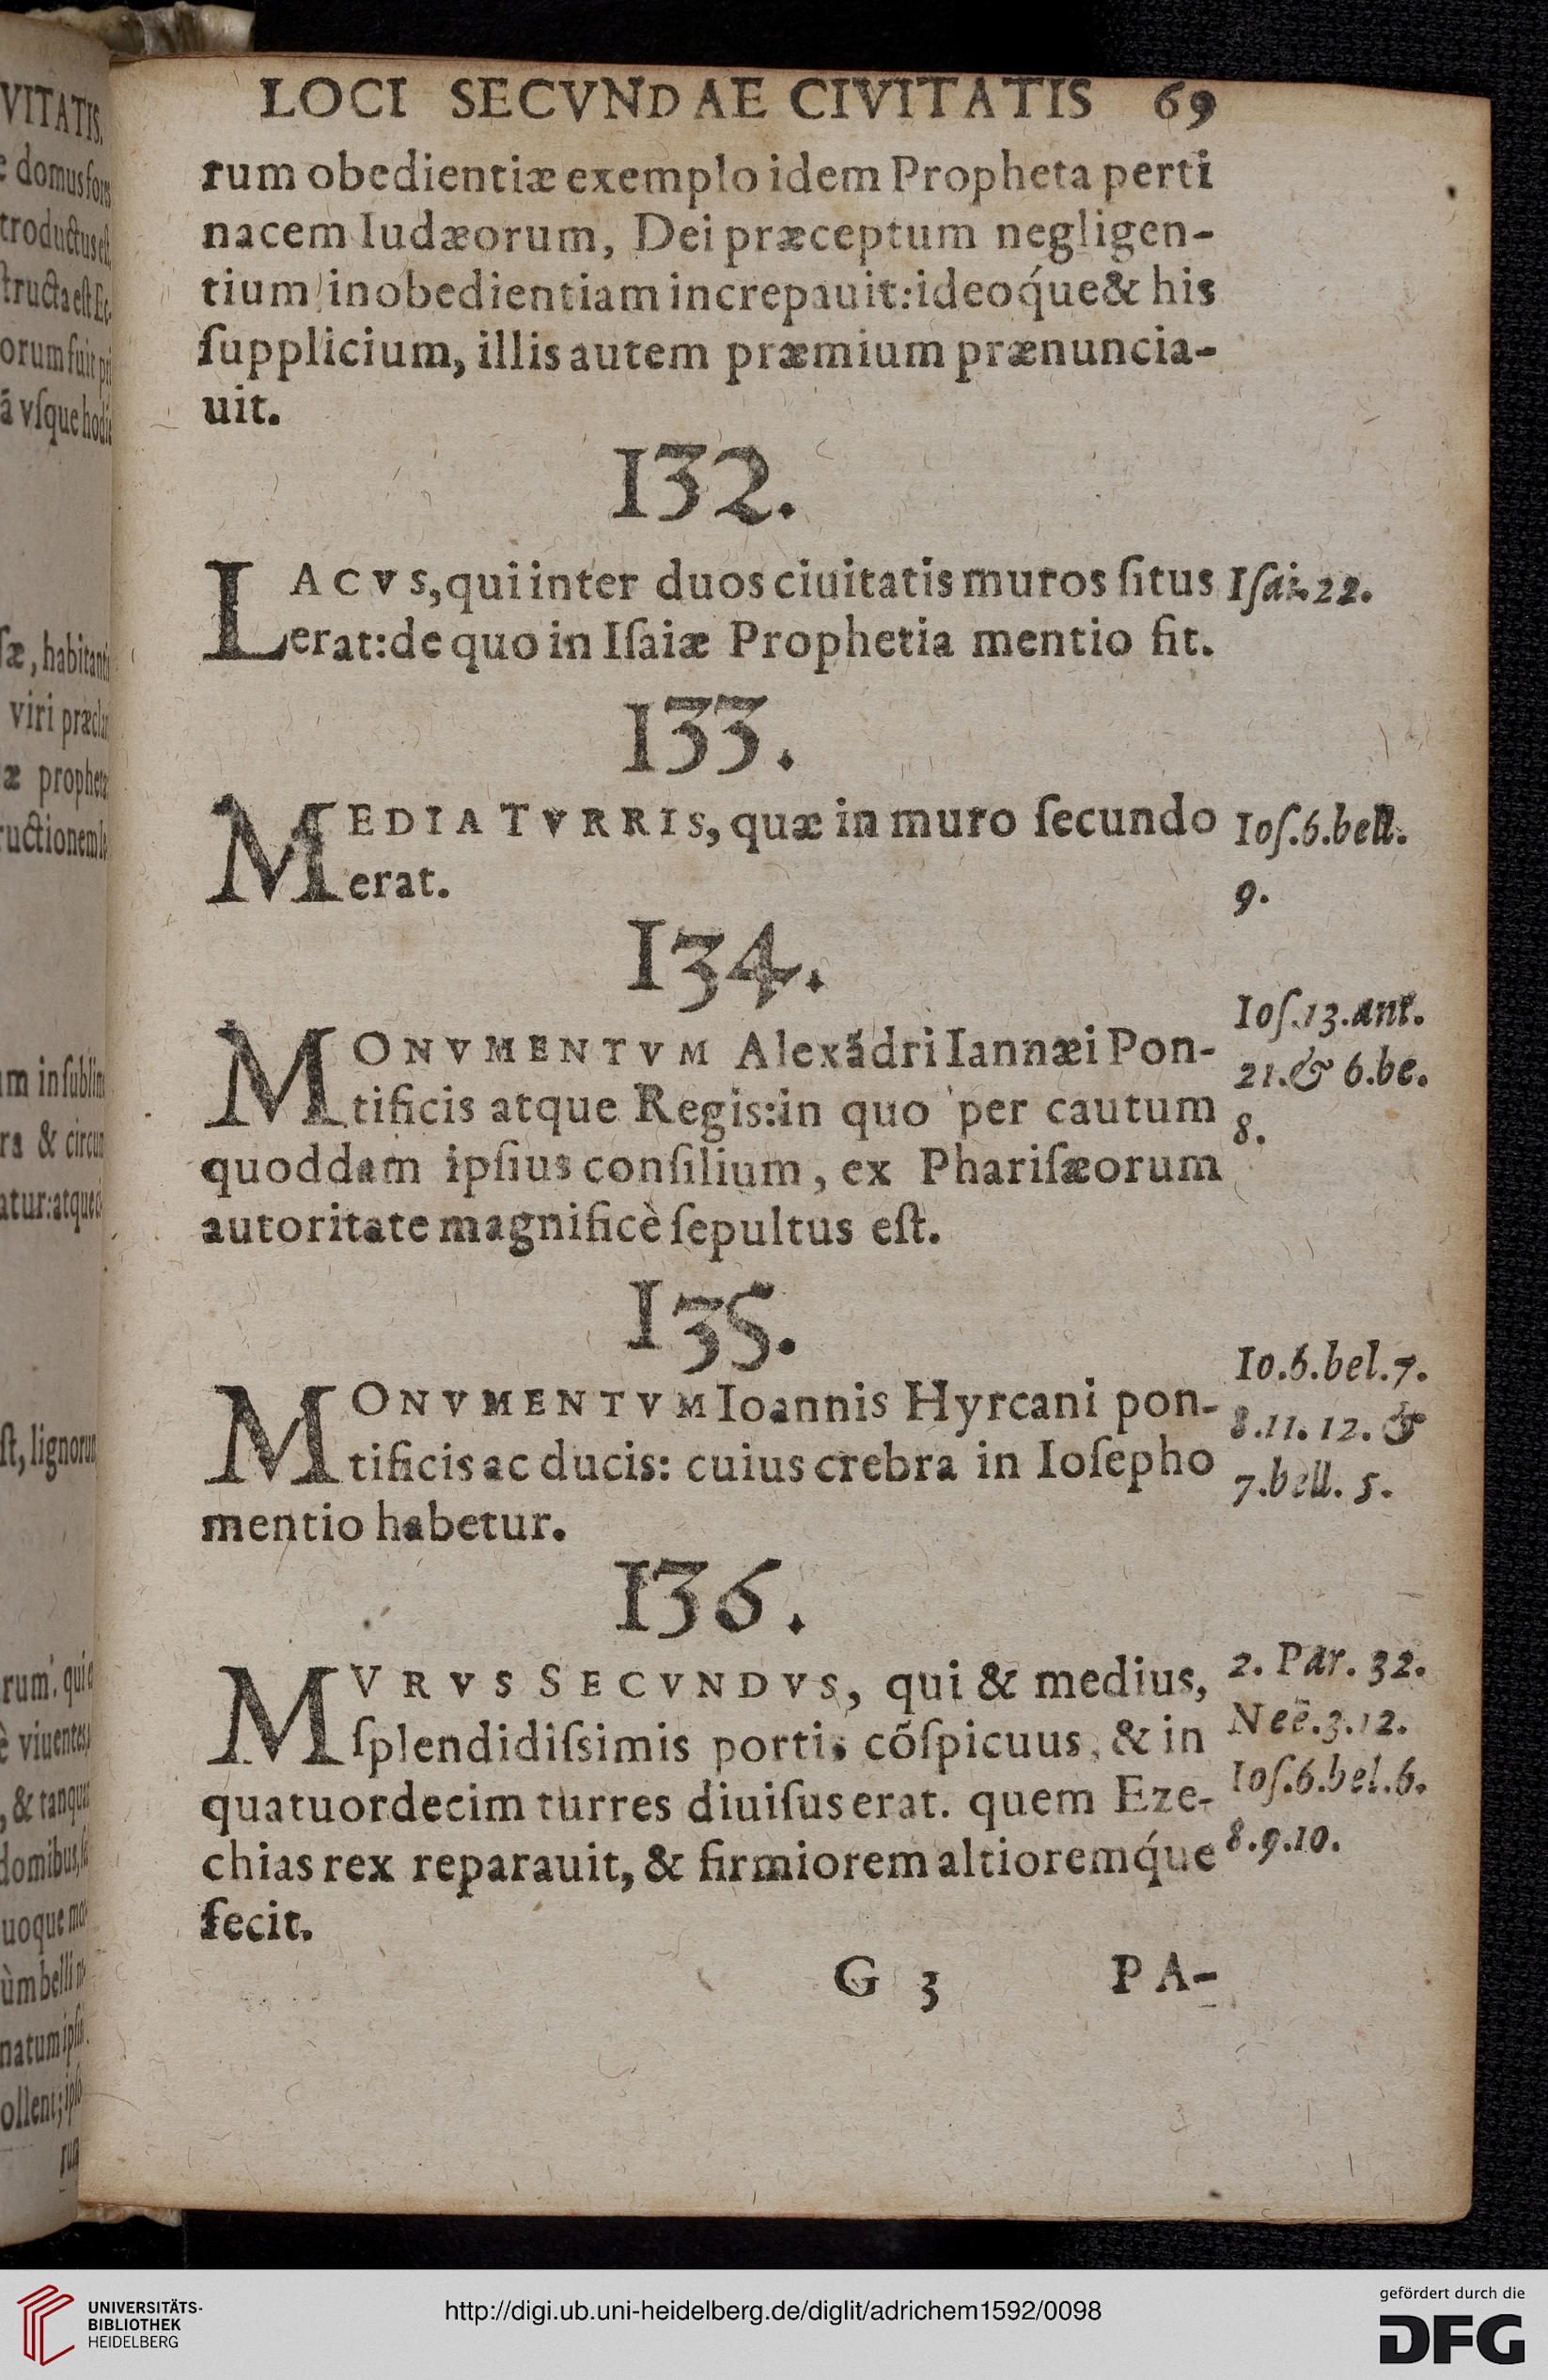 LOCI SECVNDAE CIVITATIS 69
rum obedientiæ exemplo idem Propheta perti
nacem Iudæorum, Dei præceptum negligen-
tium inobedientiam increpauit: ideoq́ue & his
ſupplicium, illis autem præmium prænuncia-
uit.
132.
LACVS, qui inter duos ciuitatis muros ſitus
Iſai. 22.
erat: de quo in Iſaiæ Prophetia mentio fit.
133.
MEDIA TVRRIS, quæ in muro ſecundo
Ioſ.6.bell.
erat.
9.
134.
Ioſ.13.ant.
MONVMENTVM Alexãdri Iannæi Pon-
21.& 6.be.
tificis atque Regis: in quo per cautum
8.
quoddam ipſius conſilium, ex Phariſæorum
autoritate magnificè ſepultus eſt.
135.
Io.6.bel.7.
MONVMENTVM Ioannis Hyrcani pon-
8.11.12.&
tificis ac ducis: cuius crebra in Ioſepho
7.bell. 5.
mentio habetur.
136.
2. Par. 32.
MVRVS SECVNDVS, qui & medius,
Neẽ.3.12.
ſplendidiſsimis portis cõſpicuus, & in
Ioſ.6.bel.6.
quatuordecim turres diuiſus erat. quem Eze-
8.9.10.
chias rex reparauit, & firmiorem altioremq́ue
fecit.
G 3 PA-
VITATIS.
troductus eſt,
ã vſque hodie
viri præcla
ſt, lignorum
UNIVERSITÄTS-
BIBLIOTHEK
HEIDELBERG
http://digi.ub.uni-heidelberg.de/diglit/adrichem1592/0098
gefördert durch die
DFG